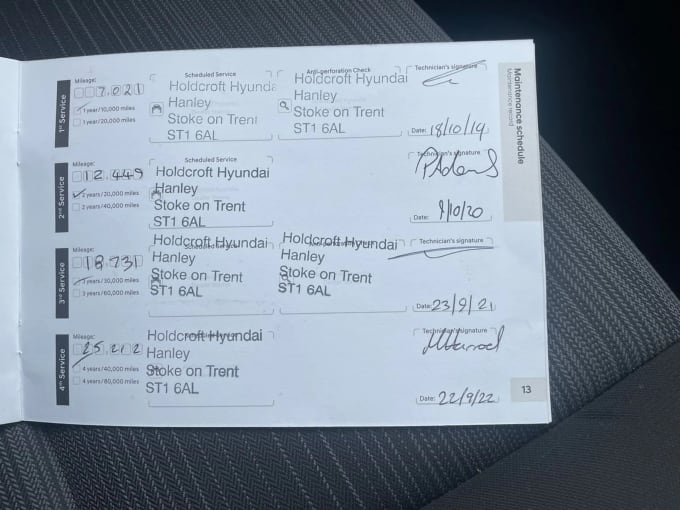 Maintenance schedule
Maintenance record
1st Service
Mileage:
7,021
1 year/10,000 miles
1 year/20,000 miles
Scheduled Service
Holdcroft Hyundai
Hanley
Stoke on Trent
ST1 6AL
Anti-perforation Check
Holdcroft Hyundai
Hanley
Stoke on Trent
ST1 6AL
Technician's signature
Date: 18/10/19
2nd Service
Mileage:
12,449
2 years/20,000 miles
2 years/40,000 miles
Scheduled Service
Holdcroft Hyundai
Hanley
Stoke on Trent
ST1 6AL
Technician's signature
PAdams
Date: 9/10/20
3rd Service
Mileage:
18,731
3 years/30,000 miles
3 years/60,000 miles
Scheduled Service
Holdcroft Hyundai
Hanley
Stoke on Trent
ST1 6AL
Holdcroft Hyundai
Hanley
Stoke on Trent
ST1 6AL
Technician's signature
Date: 23/9/21
4th Service
Mileage:
25,212
4 years/40,000 miles
4 years/80,000 miles
Holdcroft Hyundai
Hanley
Stoke on Trent
ST1 6AL
Technician's signature
Date: 22/9/22
13